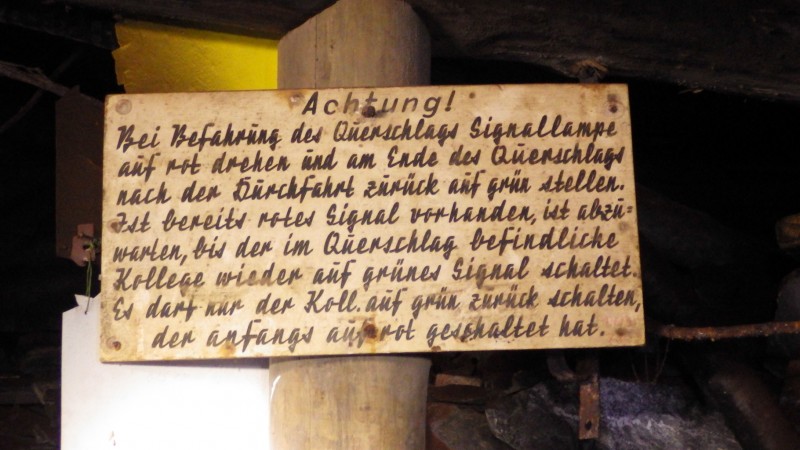 Achtung!
Bei Befahrung des Querschlags Signallampe
auf rot drehen und am Ende des Querschlags
nach der Durchfahrt zurück auf grün stellen.
Ist bereits rotes Signal vorhanden, ist abzu=
warten, bis der im Querschlag befindliche
Kollege wieder auf grünes Signal schaltet.
Es darf nur der Koll. auf grün zurück schalten,
der anfangs auf rot geschaltet hat.